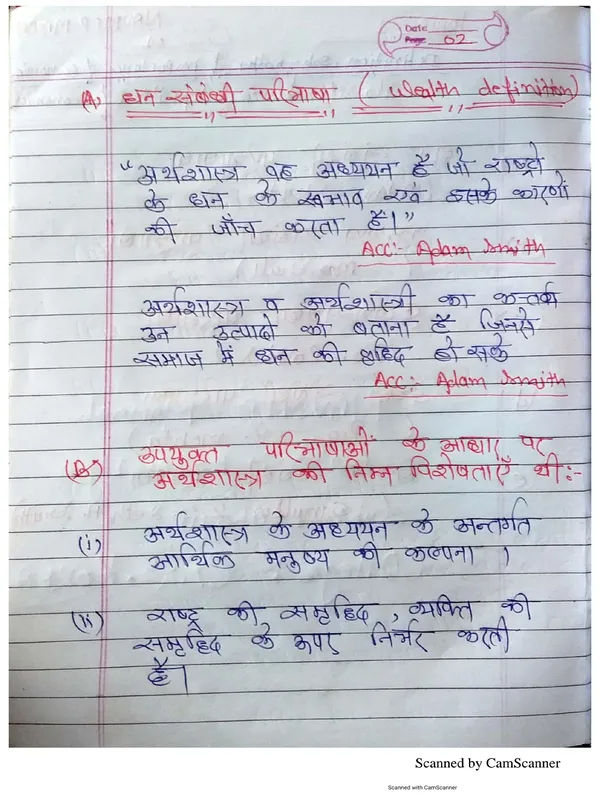 Date
Page 02
(A) धन संबंधी परिभाषा ( Wealth definition)
“अर्थशास्त्र वह अध्ययन है जो राष्ट्रो
के धन के स्वभाव एवं उसके कारणों
की जाँच करता है।”
Acc:- Adam Smith
अर्थशास्त्र व अर्थशास्त्री का कर्तव्य
उन उत्पादो को बताना है जिनसे
समाज में धन की वृद्धि हो सके
Acc:- Adam Smith
(B) उपयुक्त परिभाषाओं के आधार पर
अर्थशास्त्र की निम्न विशेषताएँ थी:-
(i) अर्थशास्त्र के अध्ययन के अन्तर्गत
आर्थिक मनुष्य की कल्पना ।
(ii) राष्ट्र की समृद्धि, व्यक्ति की
समृद्धि के ऊपर निर्भर करती
है।
Scanned by CamScanner
Scanned with CamScanner